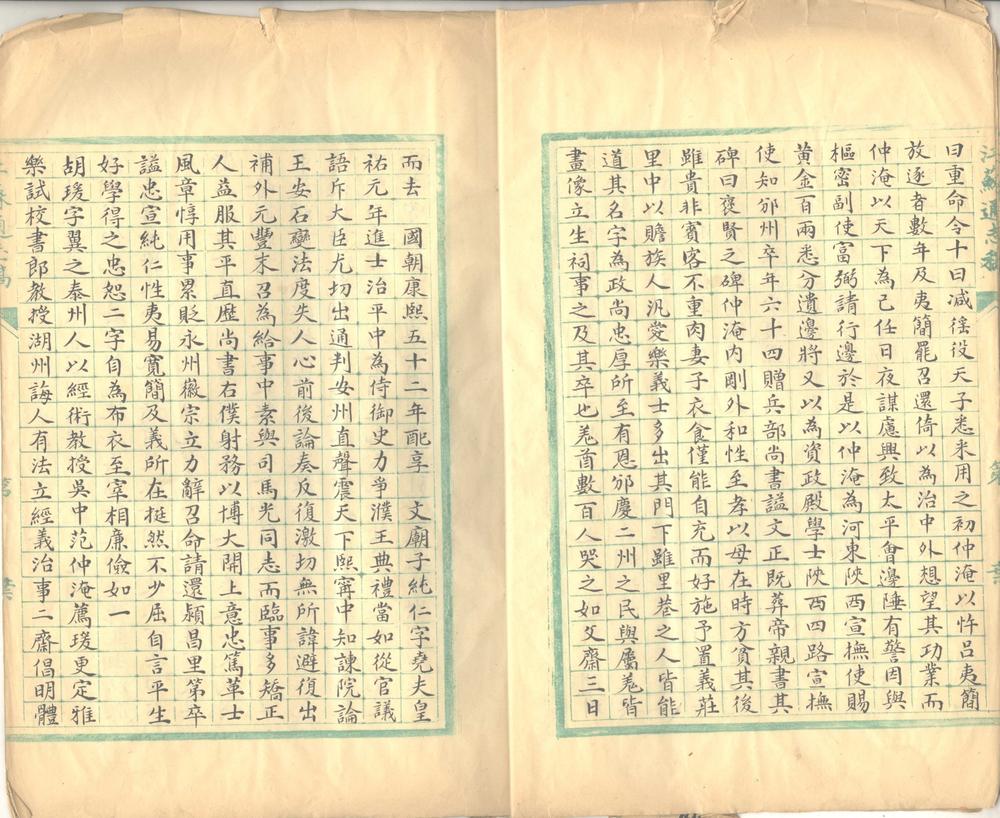 江蘇通志稿
曰重命令十曰减徭役天子悉采用之初仲淹以忤吕夷簡
放逐者數年及夷簡罷召還倚以為治中外想望其功業而
仲淹以天下為己任日夜謀慮興致太平會邊陲有警因與
樞密副使富弼請行邊於是以仲淹為河東陝西宣撫使賜
黄金百兩悉分遺邊將又以為資政殿學士陝西四路宣撫
使知邠州卒年六十四贈兵部尚書謚文正既葬帝親書其
碑曰襃賢之碑仲淹内剛外和性至孝以母在時方貧其後
雖貴非賓客不重肉妻子衣食僅能自充而好施予置義莊
里中以贍族人汎愛樂義士多出其門下雖里巷之人皆能
道其名字為政尚忠厚所至有恩邠慶二州之民與屬羌皆
畫像立生祠事之及其卒也羌酋數百人哭之如父齋三日
第
葉
而去　國朝康熙五十二年配享　文廟子純仁字堯夫皇
祐元年進士治平中為侍御史力爭濮王典禮當如從官議
語斥大臣尤切出通判安州直聲震天下熙寧中知諫院論
王安石變法度失人心前後論奏反復激切無所諱避復出
補外元豐末召為給事中素與司馬光同志而臨事多矯正
人益服其平直歷尚書右僕射務以博大開上意忠篤革士
風章惇用事累貶永州徽宗立力辭召命請還潁昌里第卒
謚忠宣純仁性夷易寬簡及義所在挺然不少屈自言平生
好學得之忠恕二字自為布衣至宰相廉儉如一
胡瑗字翼之泰州人以經術教授吳中范仲淹薦瑗更定雅
樂試校書郎教授湖州誨人有法立經義治事二齋倡明體